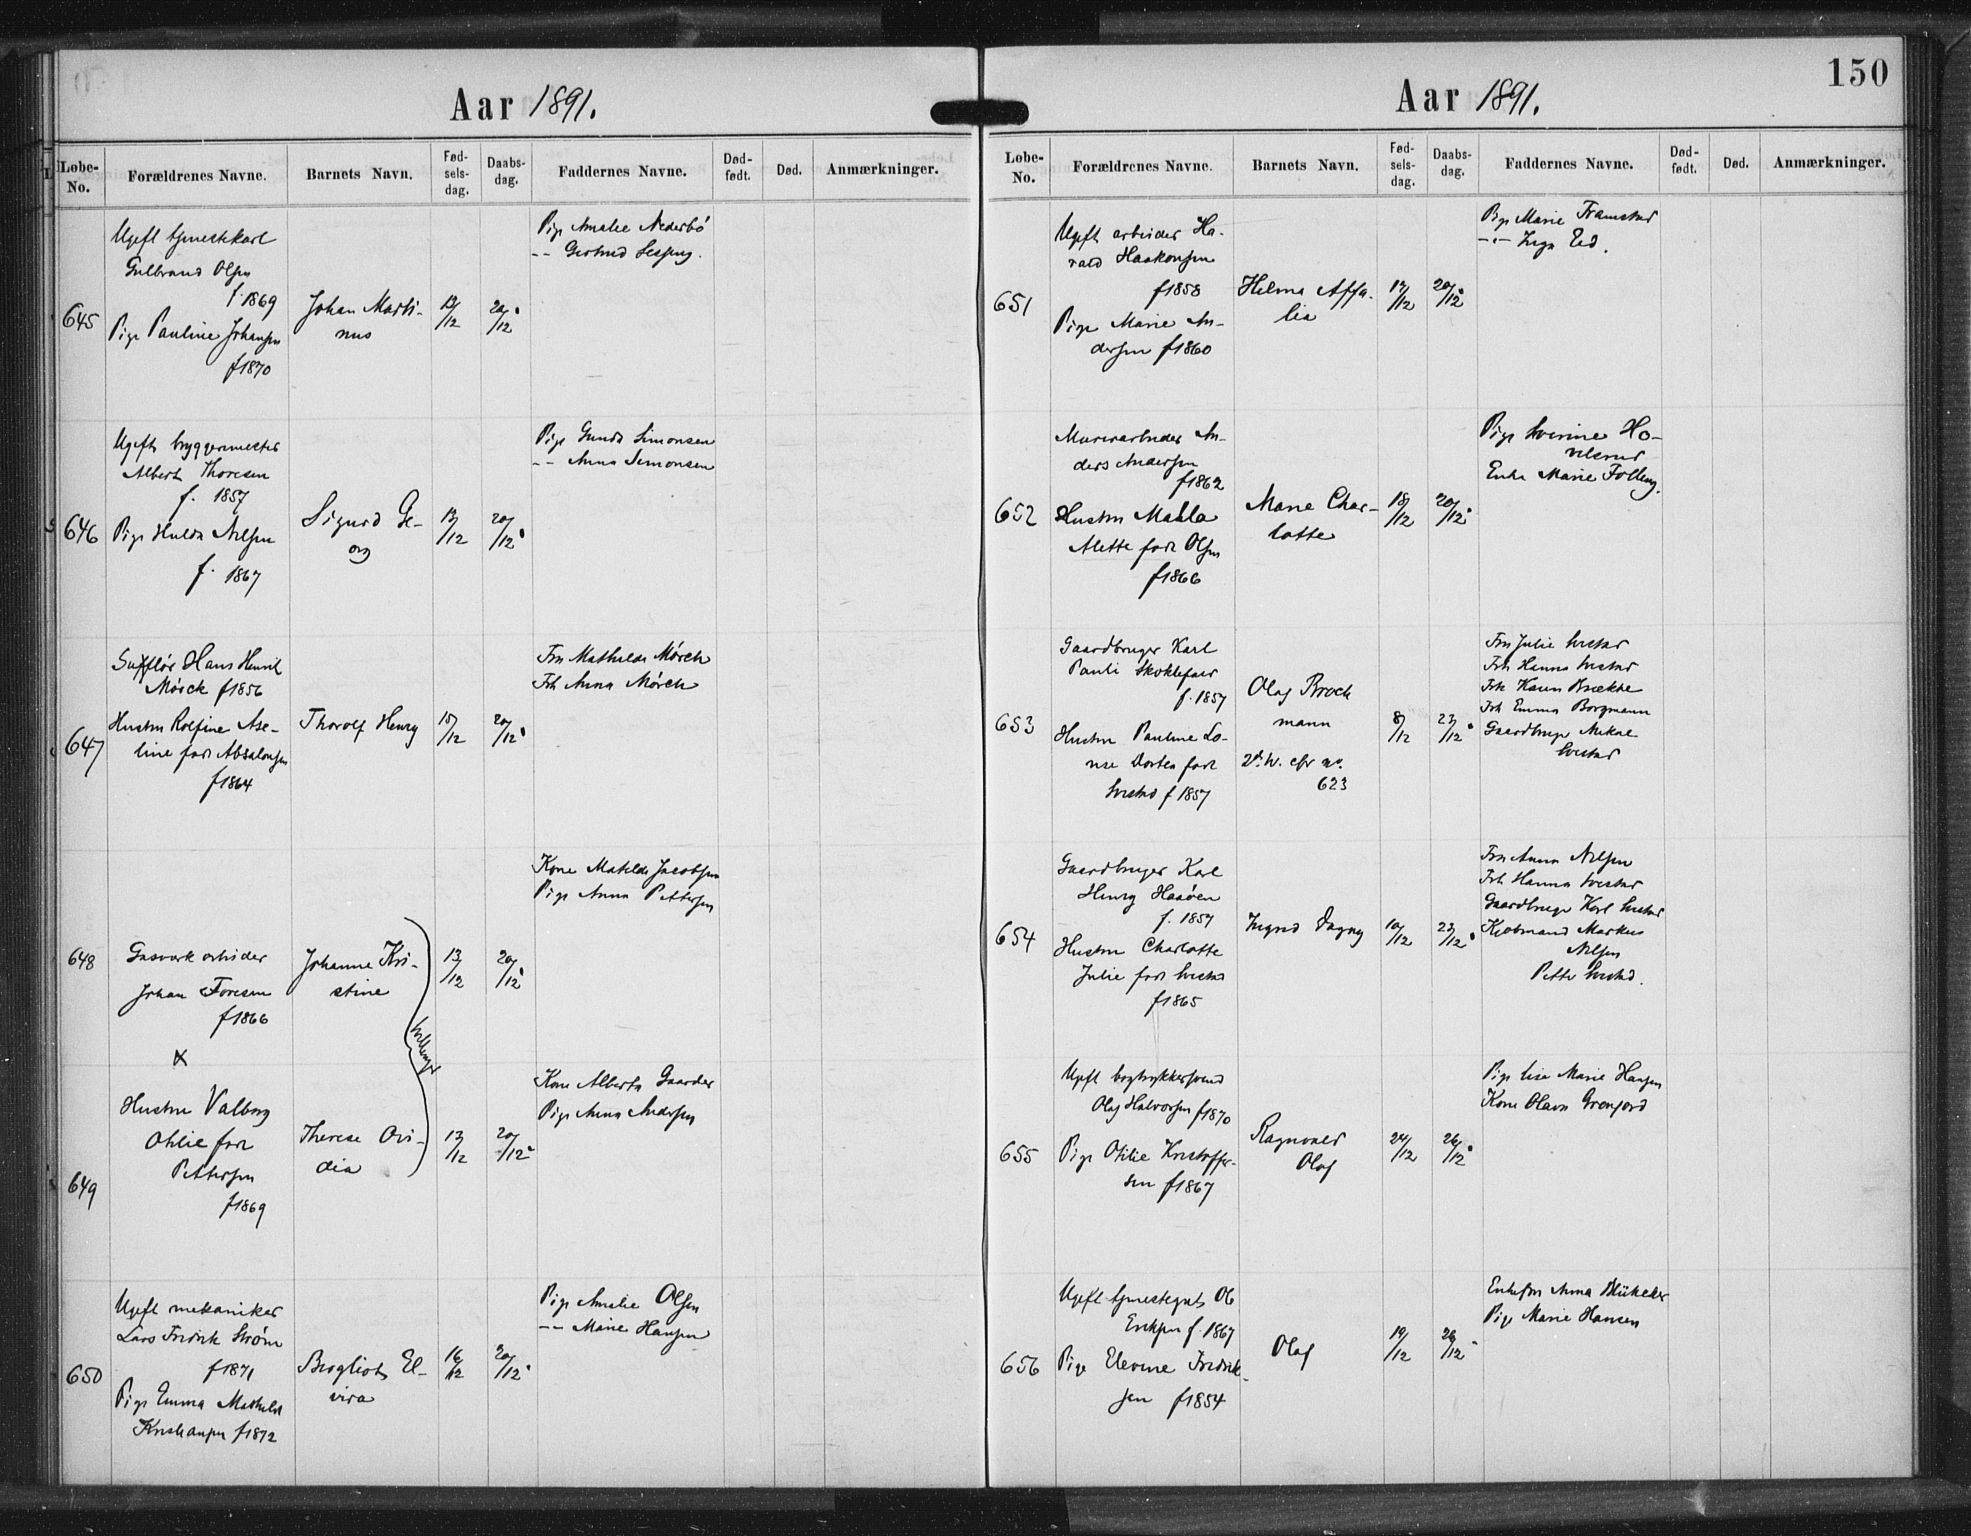 Aar 1891.
Løbe-No.
Forældrenes Navne.
Barnets Navn.
Fød-selsdag.
Daabs-dag.
Faddernes Navne.
Død-født.
Død.
Anmærkninger.
645
Ugift tjenestekarl
Gulbrand Olsen
f. 1869
Pige Pauline Johansen
f 1870
Johan Marti-
nus
12/12
20/12
Pige Amalie Nederbø
-- Gertrud
646
Ugift bryggermester
Albert Thoresen
f. 1857
Pige Hulda Nilsen
f. 1867
Sigurd Ge-
org
13/12
20/12
Pige Gunda Simonsen
-- Anna Simonsen
647
Sufflør Hans Henrik
Mørck f 1856
Hustru Rolfine Ase-
line født Absalonsen
f 1864
Thorolf Henry
15/12
20/12
Fru Mathilde Mørch
Frk Anna Mørch
648
Gasverkarbeider
Johan Toresen
f 1866
x
Johanne Kri-
stine
13/12
20/12
Kone Matilde Jacobsen
Pige Anna Pettersen
Tvillinger
649
Hustru Valborg
Otilie født
Pettersen
f 1869
Therese Ovi-
dia
13/12
20/12
Kone Alberta Gaarder
Pige Anna Andersen
650
Ugift mekaniker
Lars Fredrik Strøm
f 1871
Pige Emma Mathilde
Kristiansen f 1872
Bergliot El-
vira
16/12
20/12
Pige Amalie Olsen
-- Marie Hansen
150
Aar 1891.
Løbe-No.
Forældrenes Navne.
Barnets Navn.
Fød-selsdag.
Daabs-dag.
Faddernes Navne.
Død-født.
Død.
Anmærkninger.
651
Ugift arbeider Ha-
rald Haakonsen
f 1858
Pige Marie An-
dersen f 1860
Helma Affa-
lia
12/12
20/12
Pige Marie Framstad
-"- Inga Eid.
652
Murerarbeider An-
ders Andersen
f 1862
Hustru Mahla
Alette født Olsen
f 1866
Marie Char-
lotte
18/12
20/12
Pige Severine Ho-
velsrud
Enke Marie
653
Gaardbruger Karl
Pauli Skoklefald
f. 1857
Hustru Pauline Lo-
vise Dortea født
f 1857
Olaf Brock
mann
cfr no.
623
8/12
23/12
Fru Julie
Frk Hanna
Frk Karen Brække
Frk Emma Borgmann
Gaardbruger
654
Gaardbruger Karl
Henry Haaøen
f. 1857
Hustru Charlotte
Julie født
f 1865
Ingrid Dagny
10/12
23/12
Fru Anna Nilsen
Frk Hanna
Gaardbruger Karl
Kjøbmand Markus
Nilsen
Petter
655
Ugift bogtrykkersvend
Olaf Halvorsen f 1870
Pige Otilie Kristoffer-
sen f 1867
Ragnvald
Olaf
24/12
26/12
Pige Lise Marie Hansen
Kone Olava Grønjord
656
Ugift tjenestegut Ole
Eriksen f. 1867
Pige Elevine Fredrik-
sen f 1854
Olaf
19/12
26/12
Enkefru Anna
Pige Marie Hansen